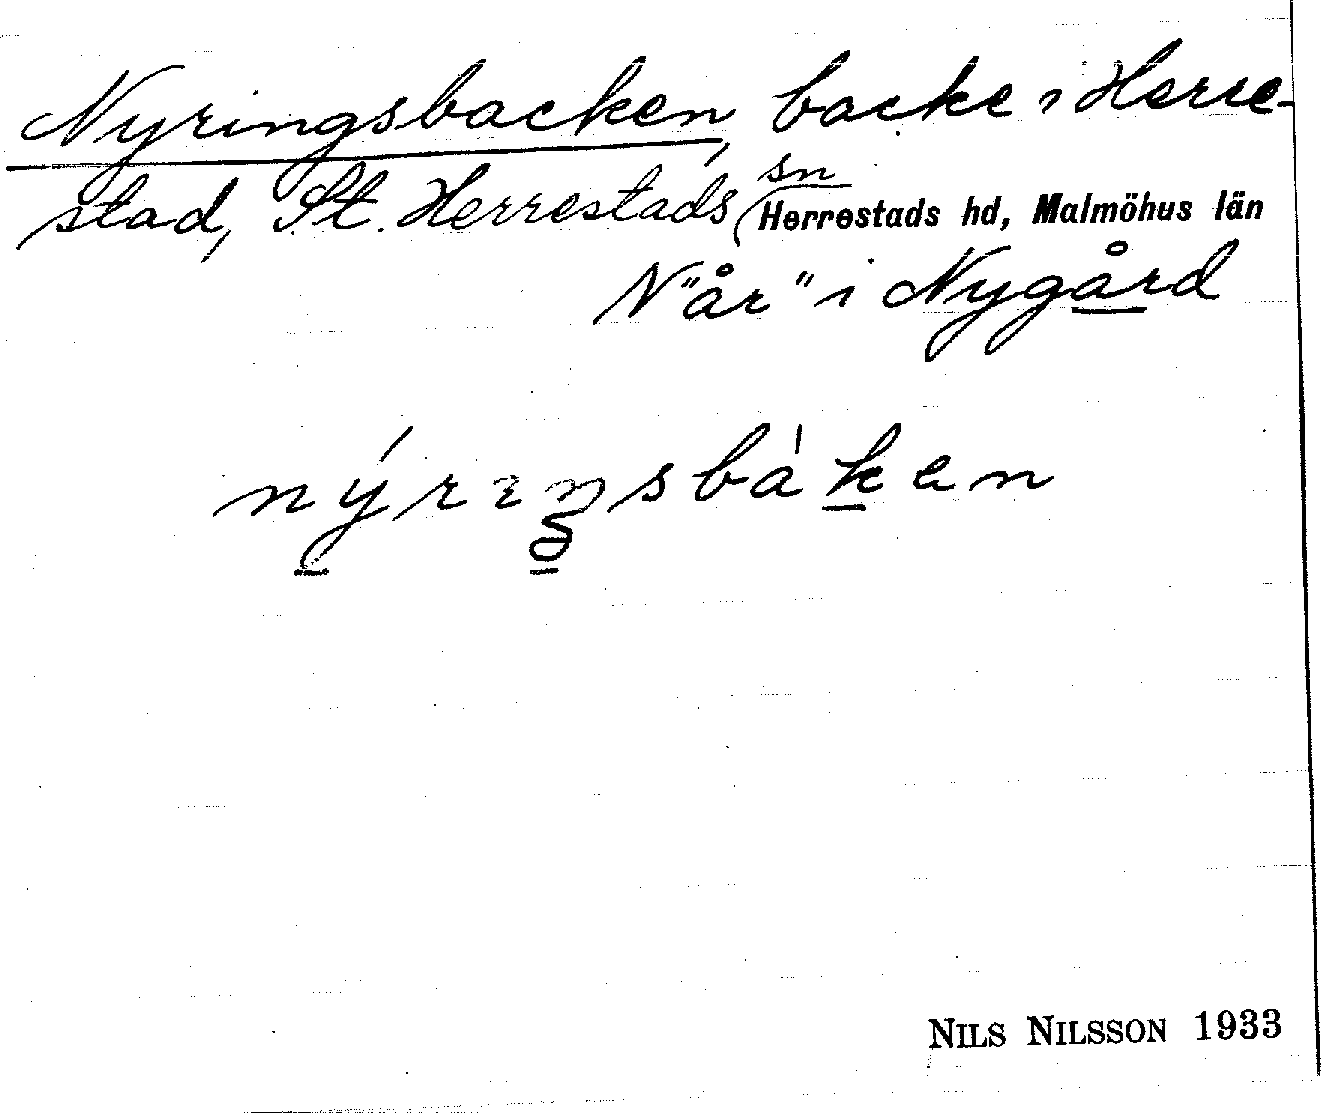 Nyringsbacken, backe i Herre-
stad, St. Herrestads sn
Herrestads hd, Malmöhus län
N "år" i Nygård
nýrıŋsbàken
NILS NILSSON 1933